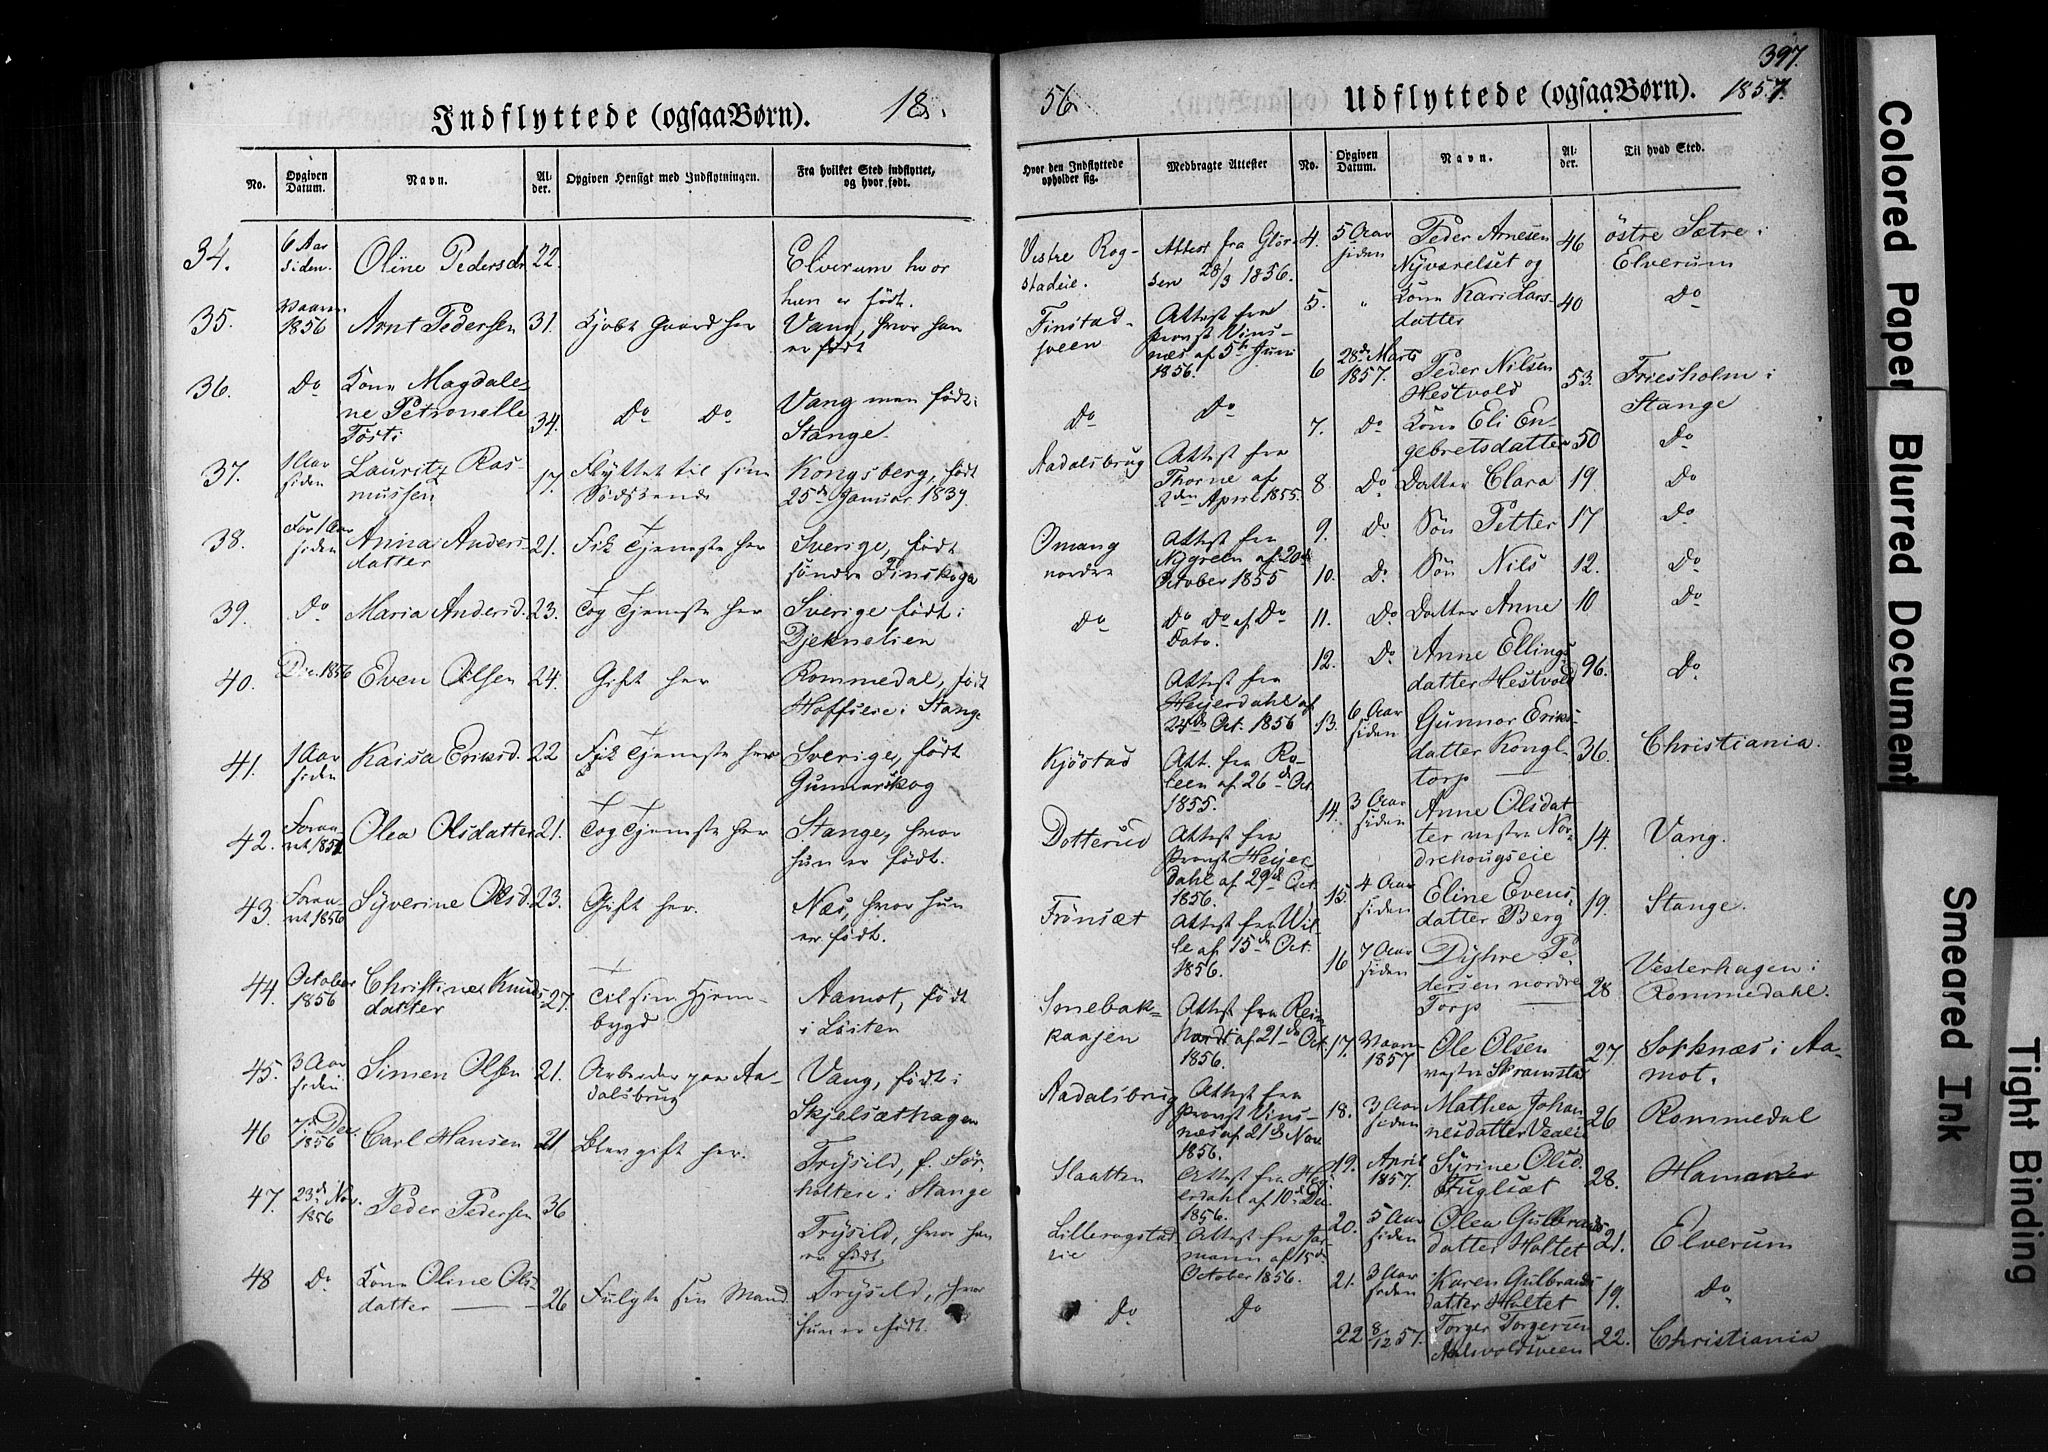 397.
Indflyttede (ogsaa Børn).
18
56.
Udflyttede (ogsaa Børn).
1857.
No.
Opgiven Datum.
Navn.
Al-der.
Opgiven Hensigt med Indflytningen.
Fra hvilket Sted indflyttet, og hvor født.
Hvor den Indflyttede opholder sig.
Medbragte Attester
No.
Opgiven Datum.
Navn.
Al-der.
Til hvad Sted.
34. 6 Aar siden. Oline Pedersdr 22. Elverum hvor hun er født. Vestre Rog-stadeie. Attest fra Glör-sen 28/3 1856.
35. Vaaren 1856 Arnt Pedersen 31. Kjøbt Gaard her Vang, hvor han er født Finstad-sveen Attest fra Provst Vins-næs af 5te Juni 1856.
36. Do Kone Magdale-ne Petronelle Tosti 34. Do Do Vang men født i Stange. Do Do
37. 1 Aar siden Lauritz Ras-mussen 17. Flyttet til sine Södskende Kongsberg, født 25de Januar 1839. Aadalsbrug Attest fra Thorne af 2den April 1855.
38. For 1 Aar siden Anna Anders-datter 21. Fik Tjeneste her Sverige, født söndre Finskoga Omang nordre Attest fra Nygreen af 20de October 1855
39. Do Maria Andersd. 23. Tog Tjeneste her Sverige født i Do Do Do af Do Dato.
40. Dec. 1856 Even Olsen 24. Gift her Rommedal, født i Stange Attest fra Heijerdahl af Oct. 1856
41. 1 Aar siden Kaisa Eriksd. 22 Fik Tjeneste her Sverige, født Gunnarskog Kjöstad Att. fra af 26de Oct. 1855.
42. Foraa-ret Olea Olsdatter 21. Tog Tjeneste her Stange, hvor hun er født. Dotterud Attest fra Provst Heijer-dahl af 29de Oct. 1856.
43. Foraa-ret 1856 Syverine Olsd. 23. Gift her. Næs, hvor hun er født. Frönsæt Attest fra Wil-le af 15de Oct. 1856.
44. October 1856 Christine Knuds-datter 27. Til sin Hjem-bygd Aamot, født i Löiten Smebak-kaajen Attest fra Rein-hardt af 21de Oct. 1856.
45. 3 Aar siden Simen Olsen 21. Arbeider paa Aa-dalsbrug Vang, født i Skjelsæthagen Aadalsbrug Attest fra Provst Vins-næs af 21de Nov. 1856.
46 7de Dec. 1856 Carl Hansen 21 Blev gift her. Trysild, f. Sör-holteie i Stange Slaatten Attest fra Hei-erdahl af 10de Dec 1856.
47. 23de Nov. 1856 Peder Pedersen 36 Trysild, hvor han er født Lillerogstad eie Attest fra Jar-mann af 15de October 1856.
48 Do Kone Oline Ols-datter 26 Fulgte sin Mand. Trysild, hvor hun er født. Do Do
4. 5 Aar siden Peder Arnesen Nyvsrelset og 46 östre Sætre i Elverum
5. " Kone Kari Lars-datter 40 Do
6 28de Marts 1857. Peder Nilsen Hestvold 53. Friesholm i Stange
7. Do Kone Eli En-gebretsdatter 50 Do
8 Do Datter Clara 19. Do
9. Do Sön Petter 17 Do
10. Do Sön Nils 12. Do
11. Do Datter Anne 10 Do
12. Do Anne Ellings-datter Hestvold 96. Do
13. 6 Aar siden Gunnor Eriks-datter Kongl-torp 36. Christiania.
14. 3 Aar siden Anne Olsdat-ter vestre Nor-drehougseie 14. Vang.
15. 4 Aar siden Eline Evens-datter Berg 19. Stange.
16 7 Aar siden Dyhre Pe-dersen nordre Torp 28 Vesterhagen i Rommedahl.
17. Vaaren 1857 Ole Olsen vestre Skramstad 27. Sorknæs i Aa-mot.
18. 3 Aar siden Mathea Johan-nesdatter 26 Rommedal
19. April 1857. Syrine Olsd. Fuglsæt 28. Hamar
20. 5 Aar siden Olea Gulbrands-datter Holtet 21. Elverum
21. 3 Aar siden Karen Gulbrands-datter Holtet 19. Do
22 8/12 57. Torger Torgersen 22. Christiania
Colored Paper
Blurred Document
Smeared Ink
Tight Binding